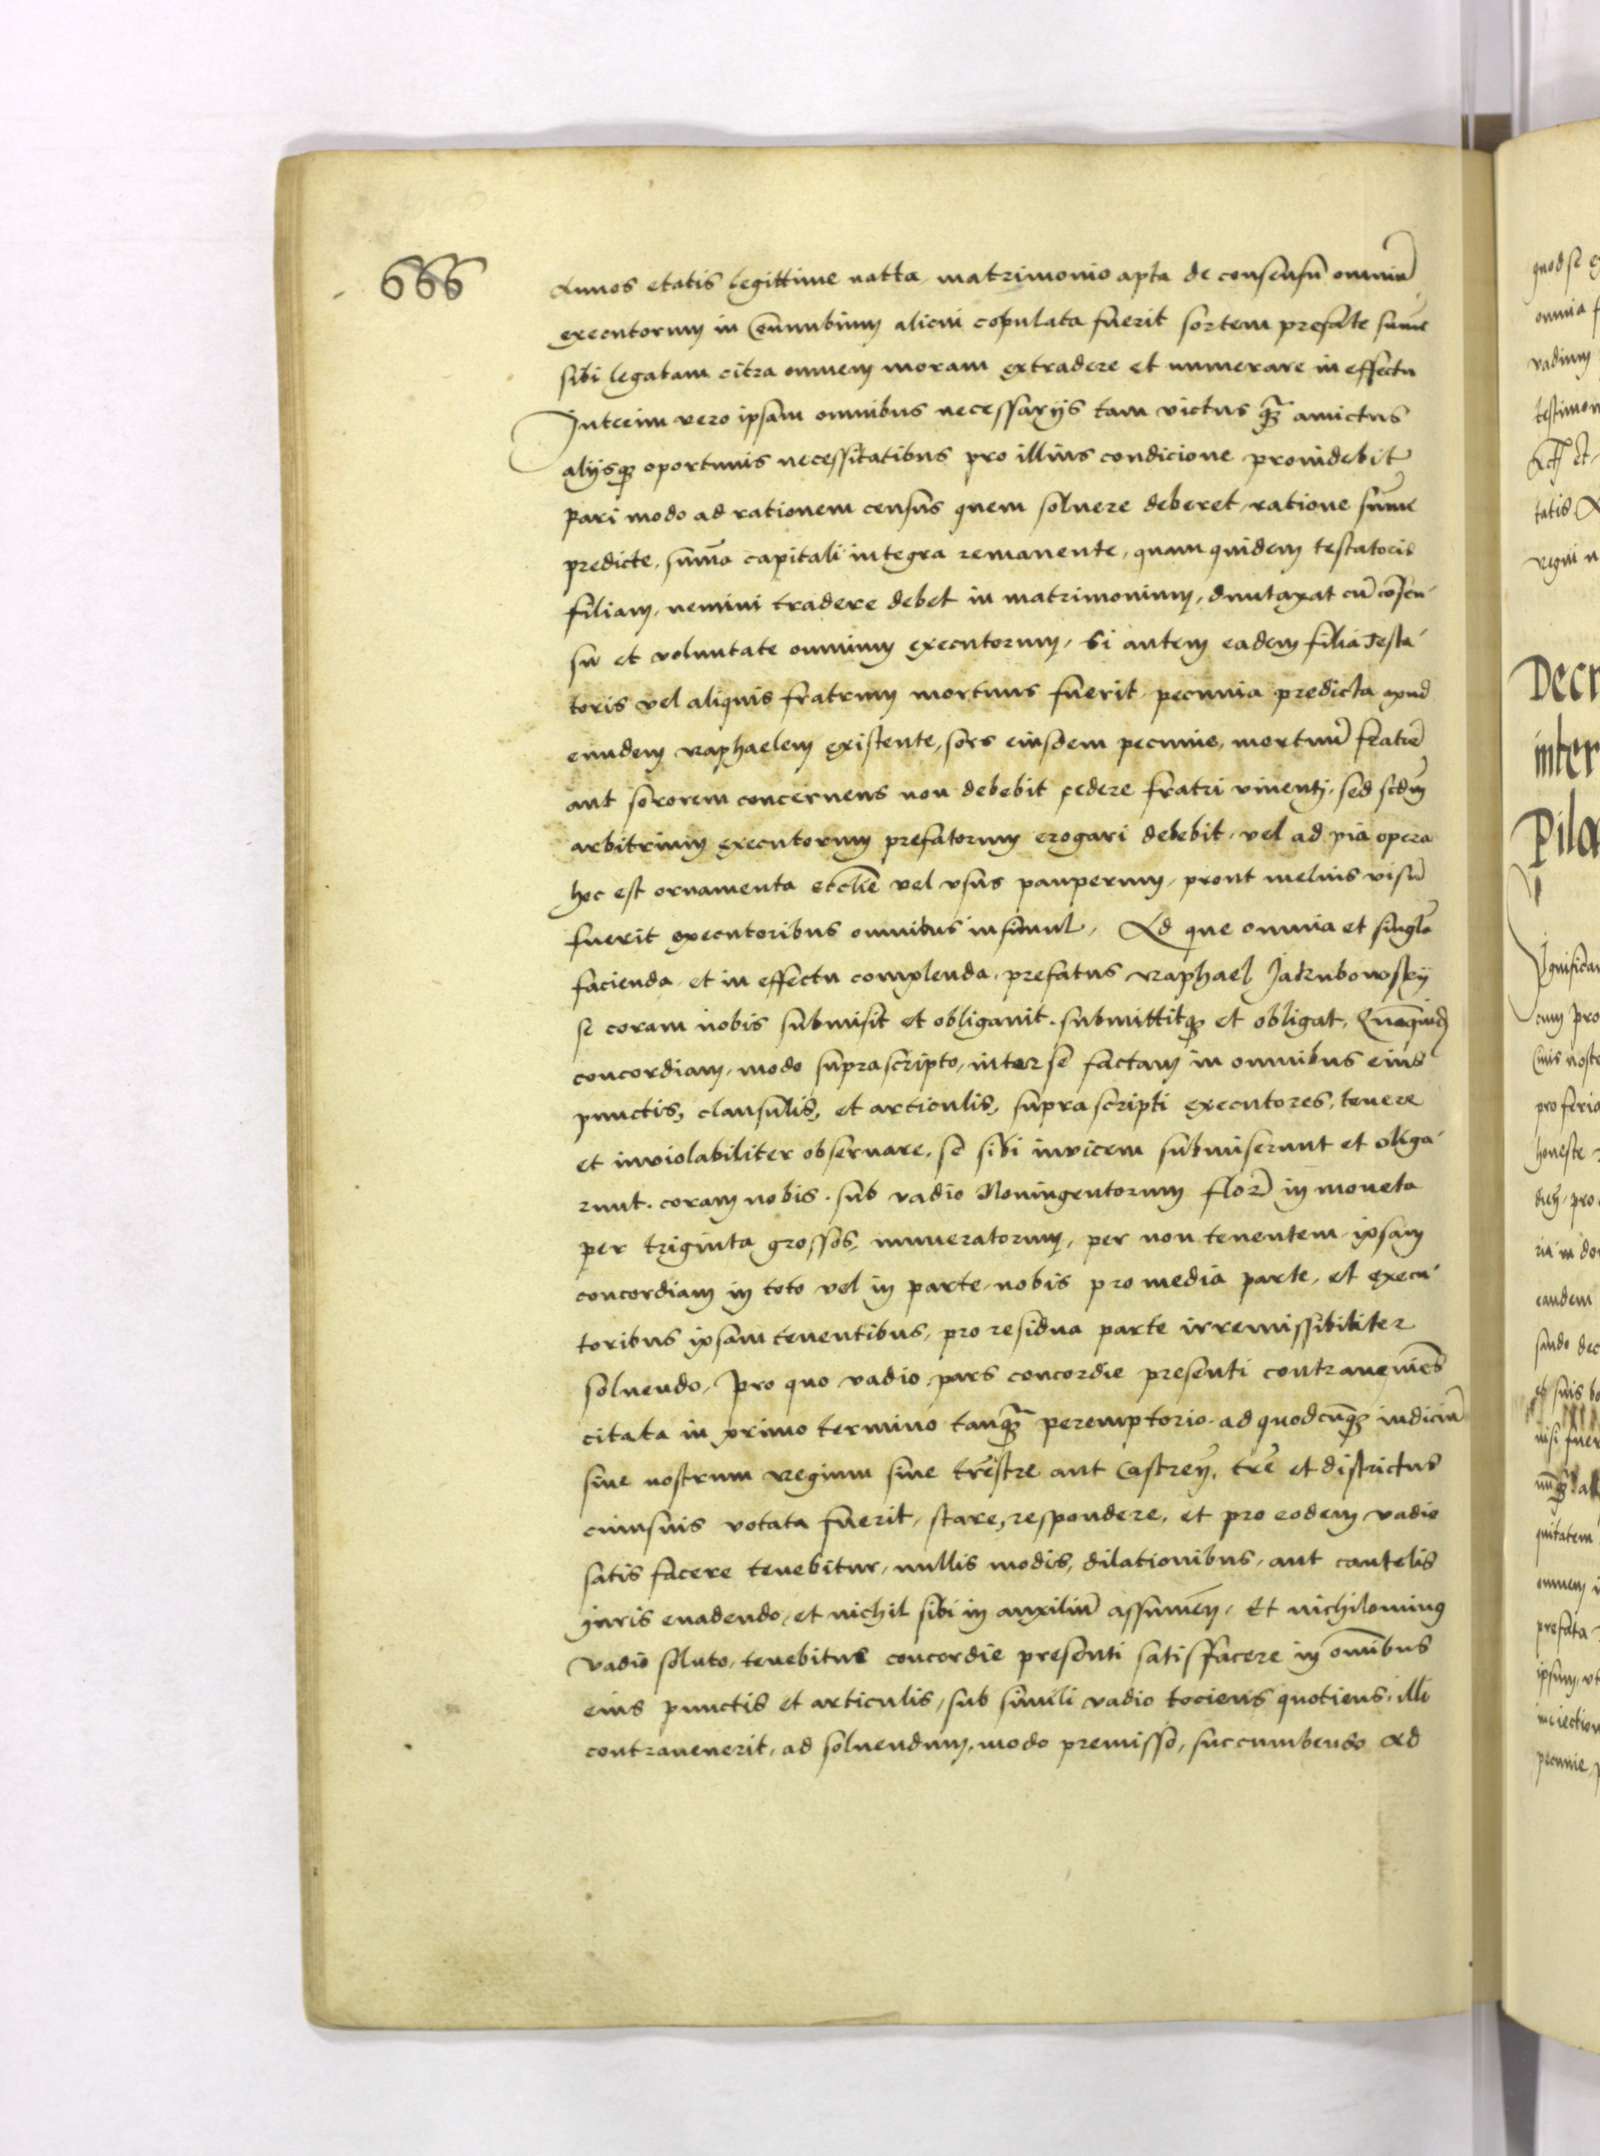 666
Annos etatis legittime natta matrimonio apta de consensu omniu̅
executorum in Connubium alicui copulata fuerit sortem prefate sum̅e
sibi legatam citra omnem moram extradere et numerare in effectu
Interim vero ipsam omnibus necessarijs tam victus qȝ̅ amictus
alijsqȝ oportunis necessitatibus pro illius condicione prouidebit
Pari modo ad rationem census quem soluere deberet, ratione sum̅e
predicte, sum̅a capitali integra remanente, quam quidem testatoris
filiam, nemini tradere debet in matrimonium, duntaxat cu̅ co̅sen-
su et voluntate omnium executorum, Si autem eadem filia Testa-
toris vel aliquis fratrum mortuus fuerit, pecunia predicta apud
eundem Raphaelem existente, sors eiusdem pecunie, mortuu̅ fratre̅
aut sororem concernens non debebit cedere fratri viuenti, sed scd̅m
arbitrium executorum prefatorum erogari debebit, vel ad pia opera
hoc est ornamenta ecclie̅ vel vsus pauperum, prout melius visu̅
fuerit executoribus omnibus insimul, Ad que omnia et singl̅a
facienda et in effectu complenda, prefatus Raphael Jakubowsky
se coram nobis submisit et obligauit. submittitqȝ et obligat, Quaquid̅
concordiam, modo suprascripto, inter se factam in omnibus eius
punctis, clausulis, et articulis, suprascripti executores, tenere
et inviolabiliter obseruare, se sibi invicem submiserunt et obliga-
runt. coram nobis. sub vadio Noningentorum flor̅ in moneta
per triginta grossos, numeratorum, per non tenentem ipsam
concordiam in toto vel in parte, nobis pro media parte, et execu-
toribus ipsam tenentibus, pro residua parte irremissibiliter
soluendo, Pro quo vadio pars concordie presenti contraveniens
citata in primo termino tanqȝ̅ peremptorio, ad quodcu̅qȝ iudiciu̅
siue nostrum Regium siue tr̅estre aut Castren̅, tr̅e et districtus
cuiusuis votata fuerit, stare, respondere, et pro eodem vadio
satis facere tenebitur, nullis modis, dilationibus, aut cautelis
iuris euadendo, et nichil sibi in auxiliu̅ assumen̅, Et nichilominus
vadio soluto, tenebitur concordie presenti satisfacere in om̅ibus
eius punctis et articulis, sub simili vadio tociens quotiens illi
contrauenerit, ad soluendum, modo premisso, succumbendo Ad